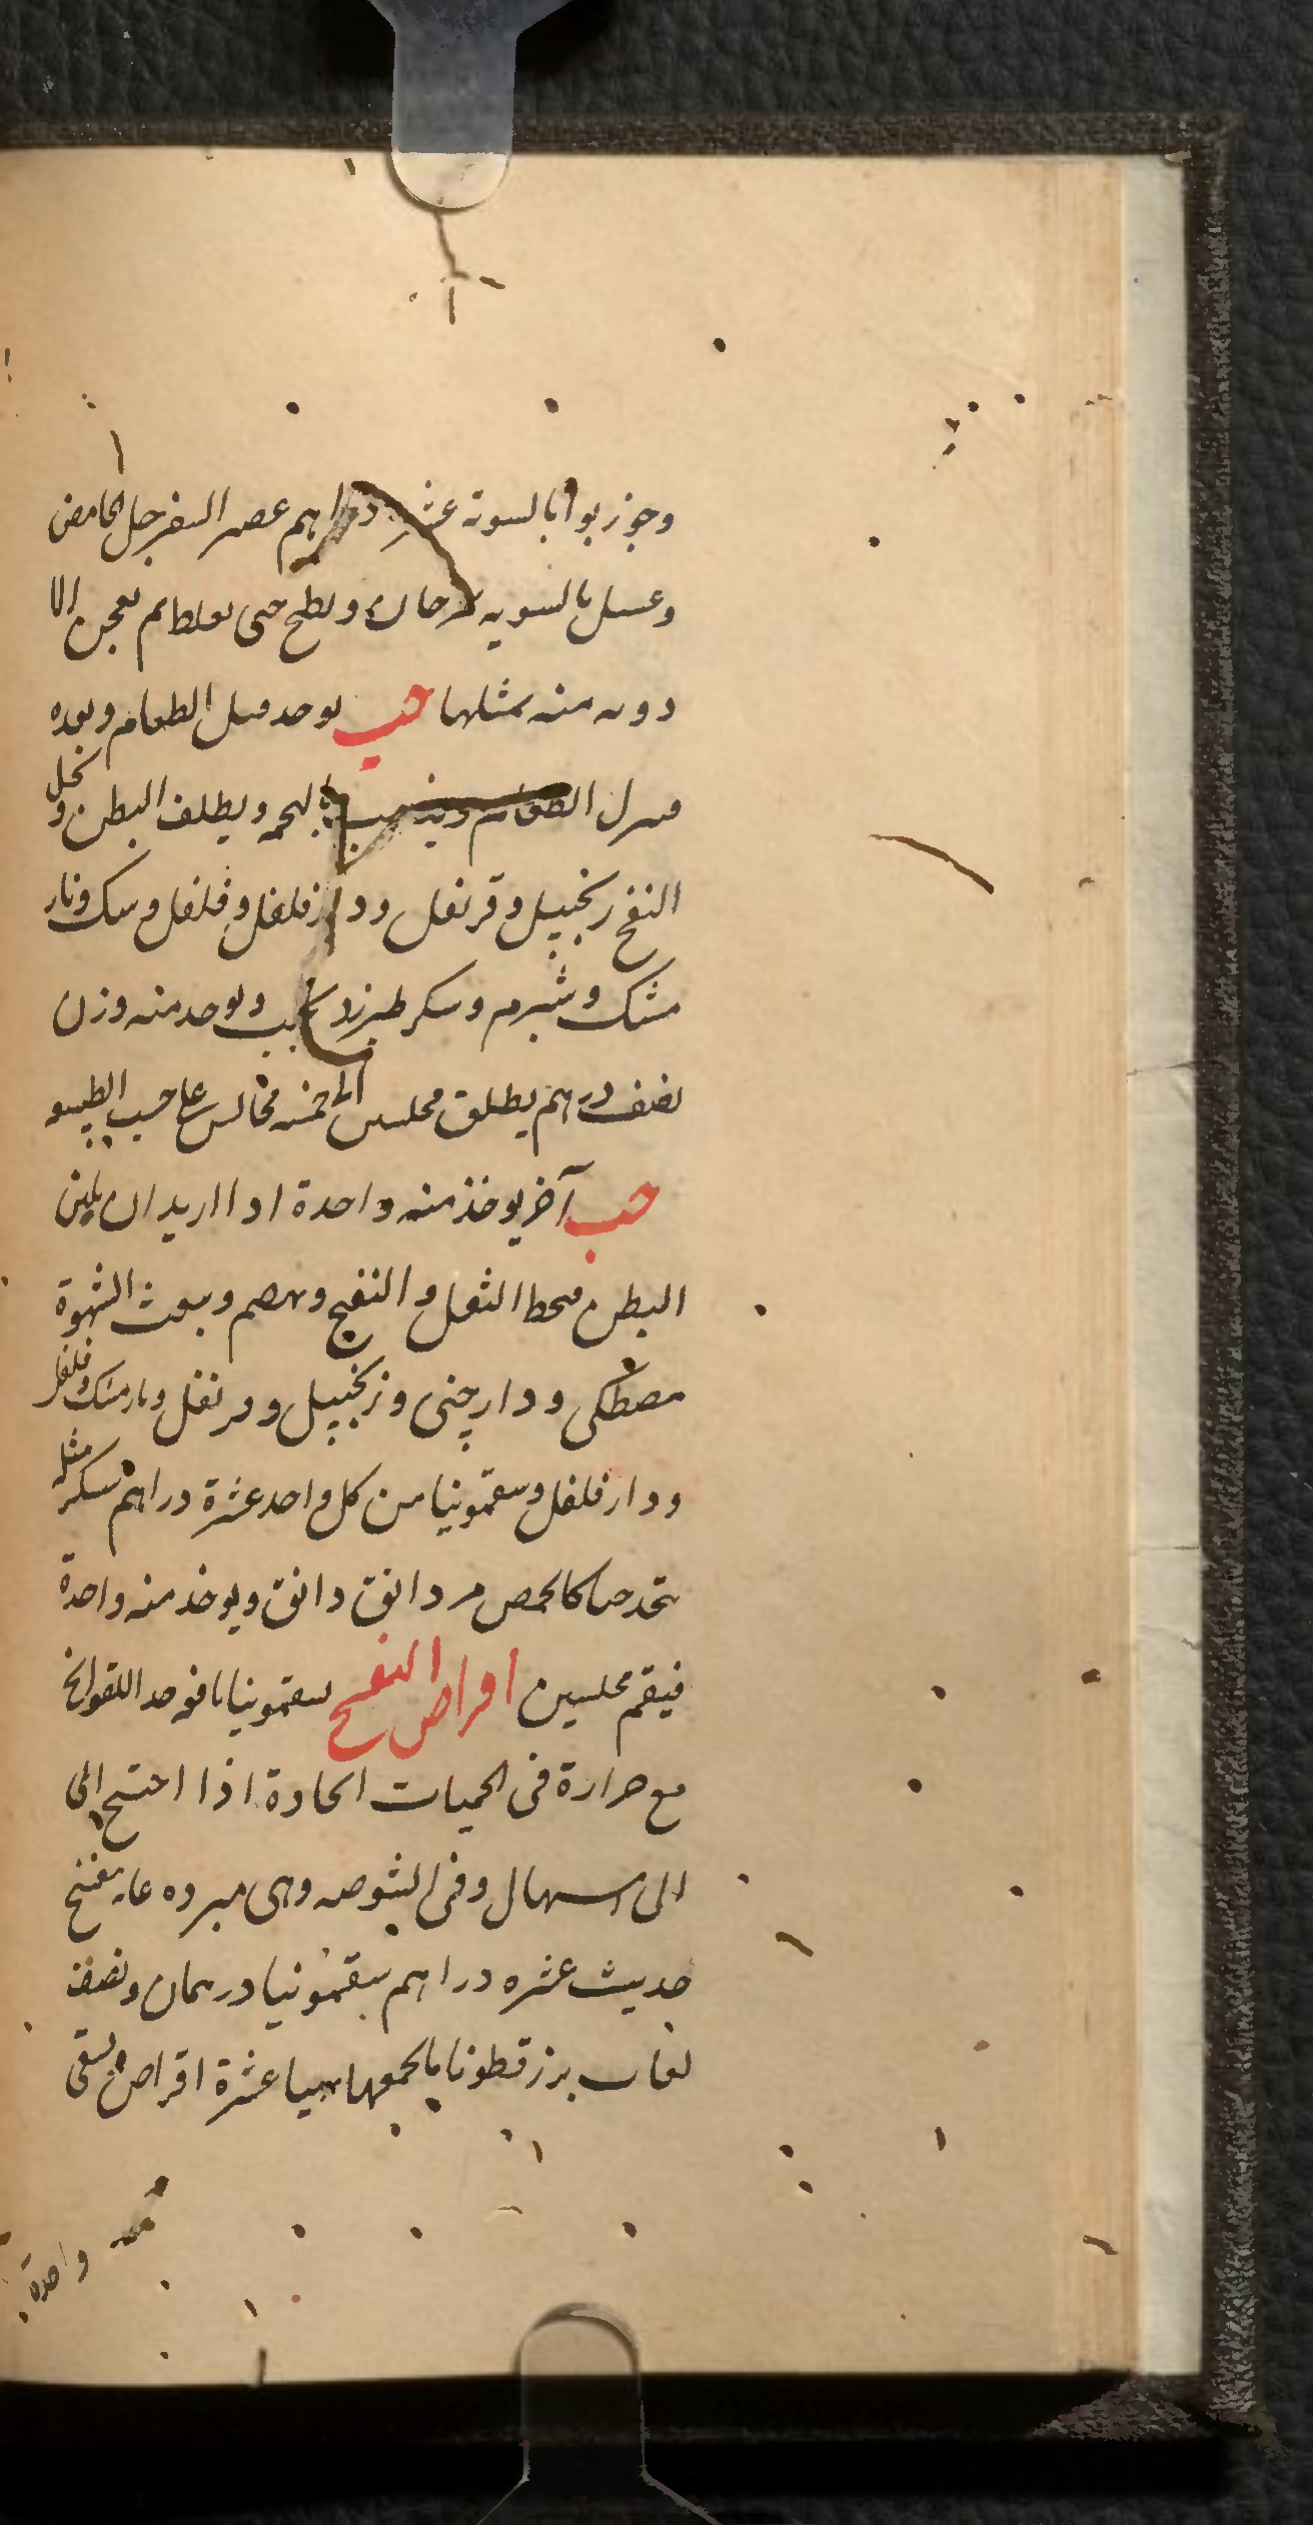 وجوز بوا بالسوية عشرة دراهم عصر السفرجل الحامض
وعسل بالسويه ويطبخ حتى يغلظ ثم يعجن الا
دويه منه بمثلها حب يوخذ قبل الطعام وبعده
الطعام ويذهب بالتخمه ويطلق البطن و يحل
النفخ زنجبيل وقرنفل ودارفلفل وفلفل وسك ونار
مشك وشبرم وسكر طبرزد يحبب ويوخذ منه وزن
نصف درهم يطلق مجلسين الى خمسه مجالس على حسب الطبيعه
حب آخر يوخذ منه واحدة اذا اريد ان يلين
البطن يحط الثفل والنفخ ويهضم ويبعث الشهوة
مصطكى ودارچينى وزنجبيل وقرنفل ونارمشك وفلفل
ودارفلفل وسقمونيا من كل واحد عشرة دراهم سكر مثله
يتخذ حبا كالحمص من دانق دانق ويوخذ منه واحدة
فيقم مجلسين اقراص البنفسج سقمونيا نافع
مع حرارة فى الحميات الحادة اذا احتيج الى
الى اسهال وفى الشوصه وهى مبرده بنفسج
حديث عشره دراهم سقمونيا درهمان ونصف
لعاب بزر قطونا ما يجمعها يهيا عشرة اقراص ويسقى
منه واحدة